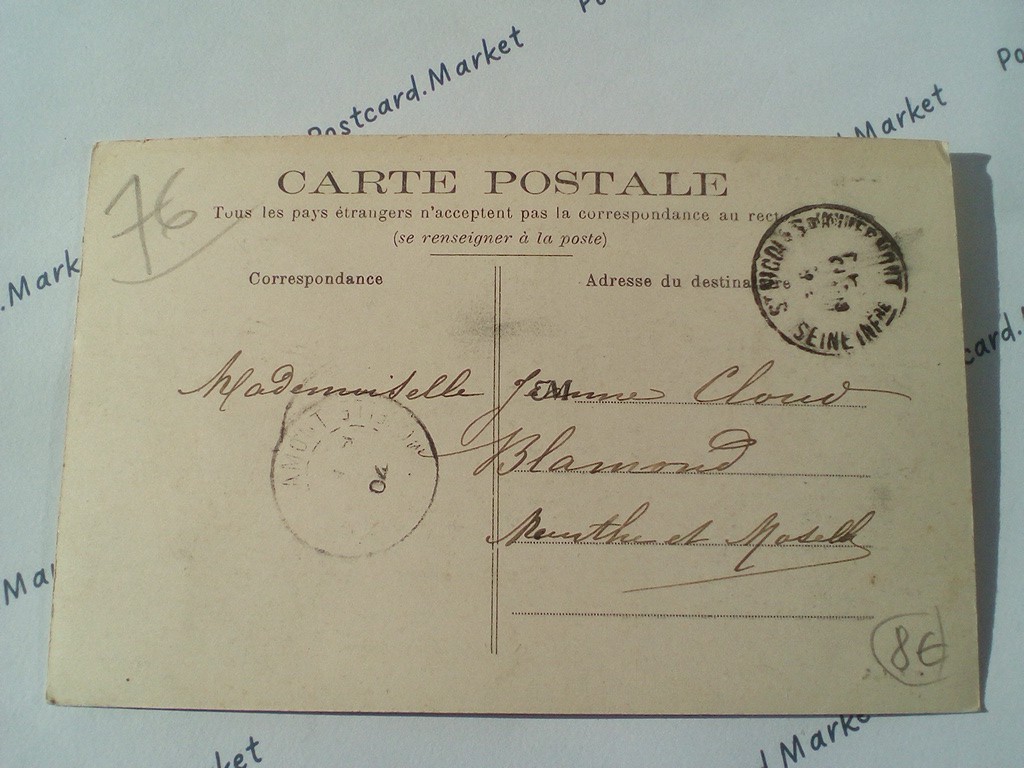 Postcard.Market
Market
.Mark
76
CARTE POSTALE
Tous les pays étrangers n'acceptent pas la correspondance au recto
(se renseigner à la poste)
Correspondance
Adresse du destinataire
ST NICOLAS D'ALIERMONT
SEINE INFRE
Mademoiselle Jeanne Cloud
Blamond
Meurthe et Moselle
04
8€
card.M
Mar
ket
d.Market